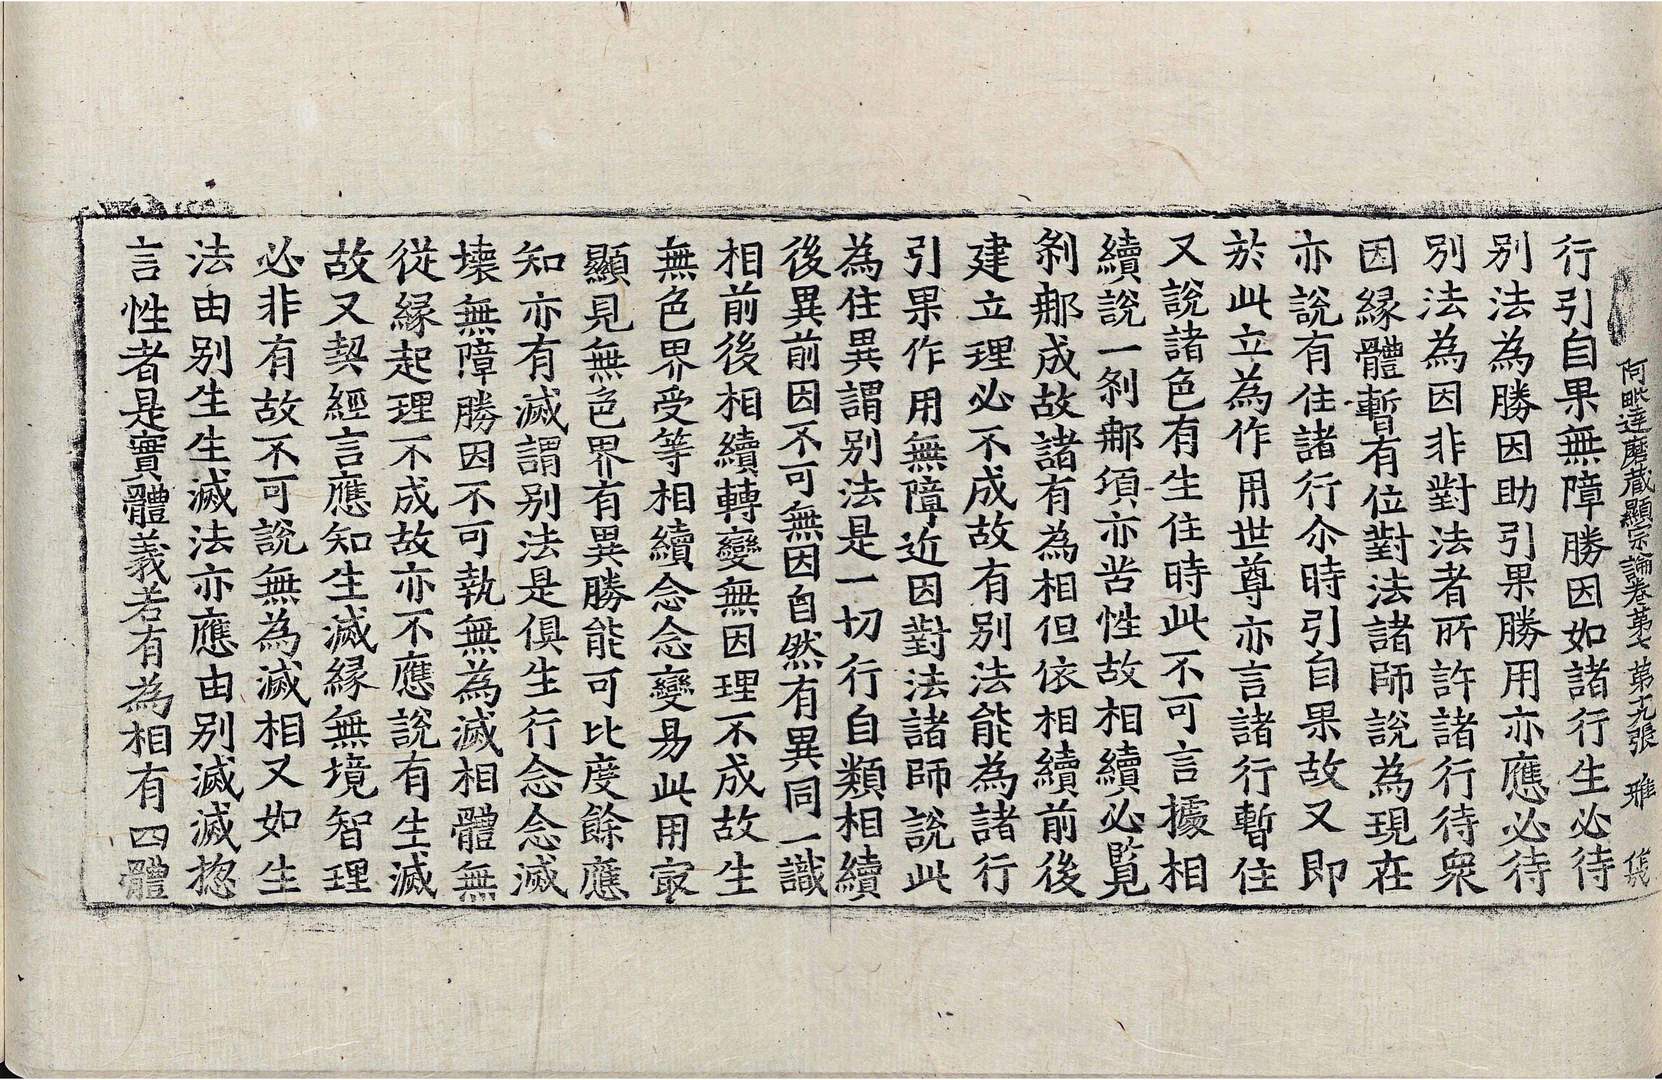 阿毗達磨藏顯宗論卷第七 第十九張 雅
行引自果無障勝因如諸行生必待
別法為勝因助引果勝用亦應必待
別法為因非對法者所許諸行待衆
因緣體暫有位對法諸師說為現在
亦說有住諸行尒時引自果故又即
於此立為作用世尊亦言諸行暫住
又說諸色有生住時此不可言據相
續說一剎那頃亦苦性故相續必覽
剎那成故諸有為相但依相續前後
建立理必不成故有別法能為諸行
引果作用無障近因對法諸師說此
為住異謂別法是一切行自類相續
後異前因不可無因自然有異同一識
相前後相續轉變無因理不成故生
無色界受等相續念念變易此用㝡
顯見無色界有異勝能可比度餘應
知亦有滅謂別法是俱生行念念滅
壞無障勝因不可執無為滅相體無
從緣起理不成故亦不應說有生滅
故又契經言應知生滅緣無境智理
必非有故不可說無為滅相又如生
法由別生生滅法亦應由別滅滅揔
言性者是實體義若有為相有四體